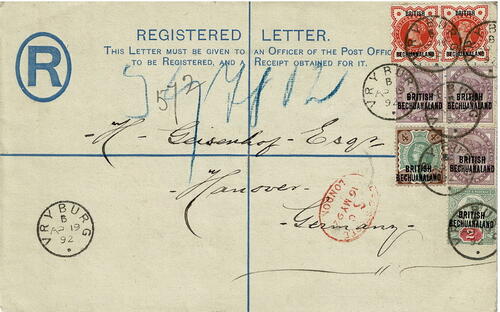 REGISTERED LETTER.
THIS LETTER MUST BE GIVEN TO AN OFFICER OF THE POST OFFICE
TO BE REGISTERED, AND A RECEIPT OBTAINED FOR IT.
R
572
H. Geisenhof Esqre
Hanover
Germany
VRYBURG
B
AP 19
92
LONDON
16 MY 92
VRYBURG
B
AP 19
92
BRITISH
BECHUANALAND
BRITISH
BECHUANALAND
BRITISH
BECHUANALAND
BRITISH
BECHUANALAND
BRITISH
BECHUANALAND
BRITISH
BECHUANALAND
BRITISH
BECHUANALAND
VRYBURG